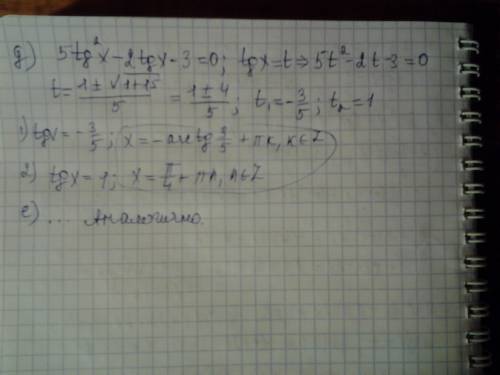 д) 5tg²x-2tgx-3=0; tgx=t⇒5t²-2t-3=0
t=(1±√(1+15))/5 = (1±4)/5; t₁=-3/5; t₂=1
1) tgx=-3/5; x=-arctg 3/5+πk, k∈Z
2) tgx=1; x=π/4+πn, n∈Z
е) ... Аналогично.